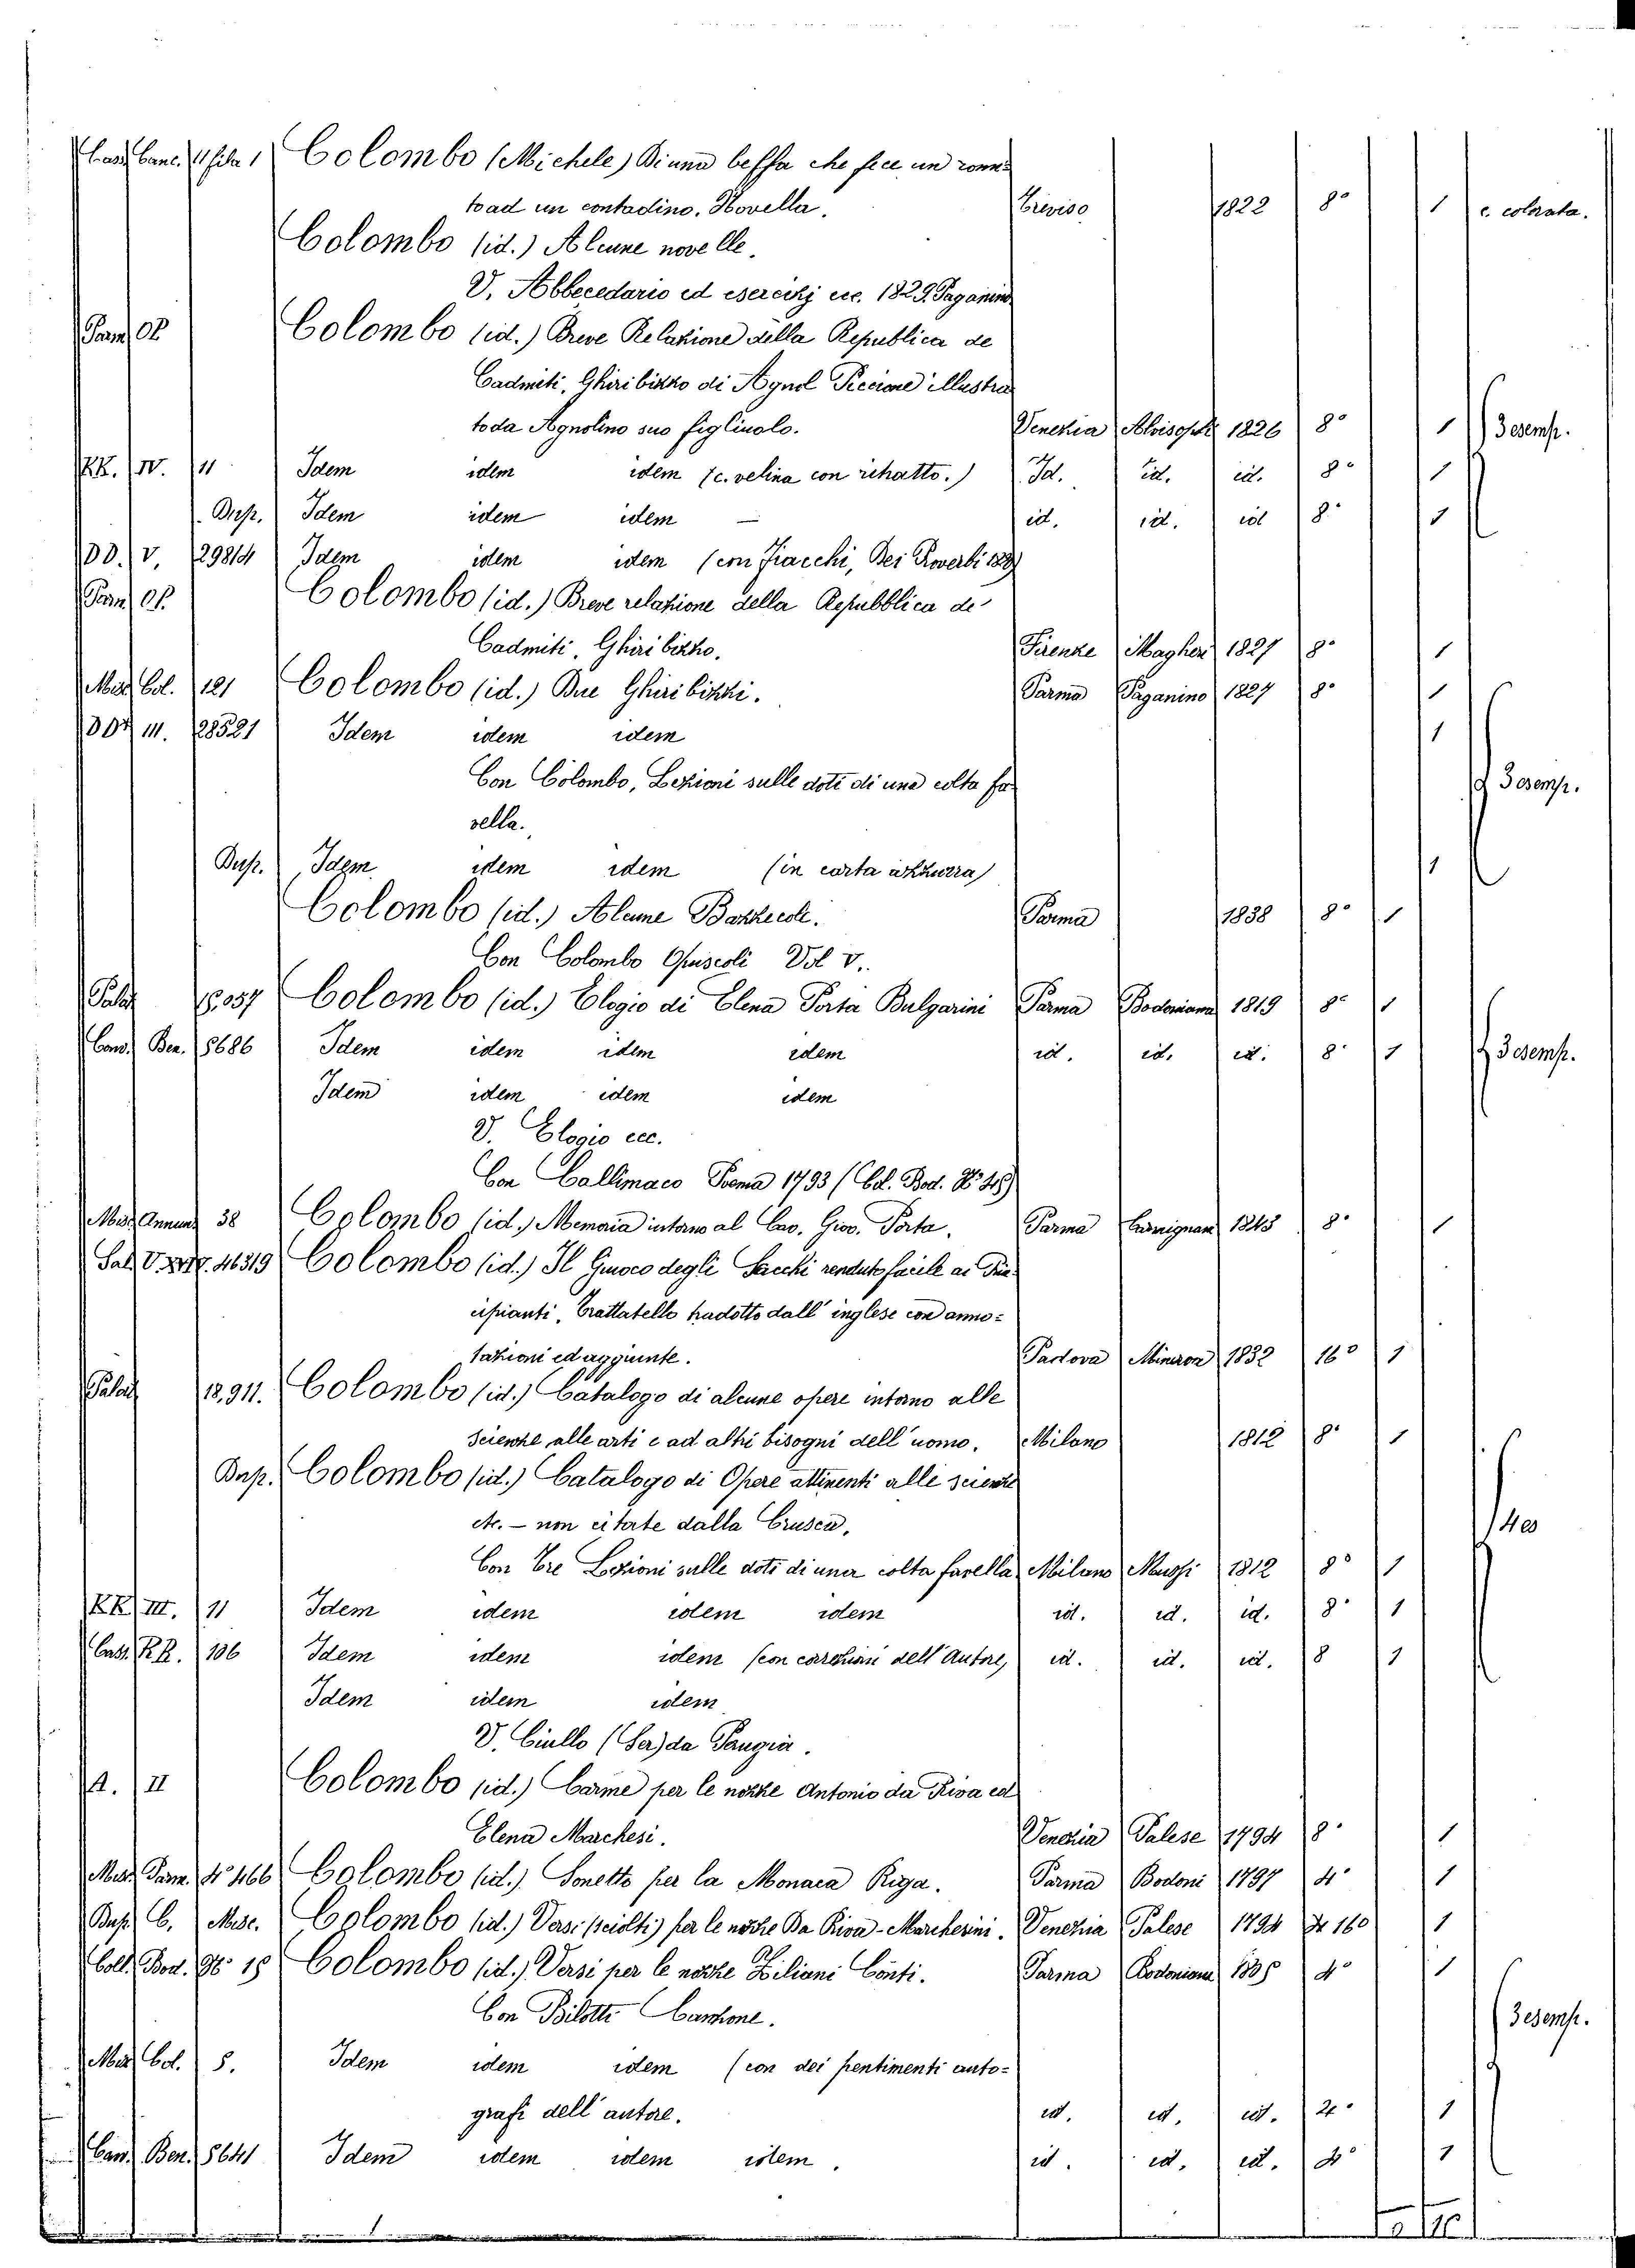 Cass. Canc. 11 fila 1 Colombo (Michele) Di una beffa che fece un rom=
to ad un contadino. Novella. Treviso 1822 8° 1 c. colorata.
Colombo (id.) Alcune novelle.
V. Abbecedario ed esercizj ecc. 1829. Paganino
Parm. Colombo (id.) Breve Relazione della Republica de
Cadmiti, Ghiribizzo di Agnol Piccione illustra
to da Agnolino suo figliuolo. Venezia Alvisop. 1826 8° 1 3 esemp.
KK. IV. 11 Idem idem idem (c. velina con ritratto.) Id. id. id. 8° 1
Dup. Idem idem idem — id. id. id 8° 1
DD. V 29814 Idem idem idem (con Fiacchi, Dei Proverbi
Parm. Colombo (id.) Breve relazione della Repubblica de'
Cadmiti. Ghiribizzo. Firenze Magher. 1827 8° 1
Misc. Col. 121 Colombo (id.) Due Ghiribizzi. Parma Paganino 1827 8° 1
III. 28521 Idem idem idem 1
Con Colombo, Lezioni sulle doti di una colta fa
vella. 3 esemp.
Dup. Idem idem idem (in carta azzurra) 1
Colombo (id.) Alcune Bazzecole. Parma 1838 8° 1
Con Colombo Opuscoli Vol V.
Palat. 15.057 Colombo (id.) Elogio di Elena Porta Bulgarini Parma Bodoniana 1819 8° 1
Cand. Ben. 5686 Idem idem idem idem id. id. id. 8° 1 3 esemp.
Idem idem idem idem
V. Elogio ecc.
Con Callimaco Poema 1793 (Col. Bod. N° 49)
Misc. Annunz. 38 Colombo (id.) Memoria intorno al Cav. Giov. Porta. Parma Carmignani 1845 8° 1
Sal. V. 46319 Colombo (id.) Il Giuoco degli Scacchi renduto facile ai Prin
cipianti, Trattatello tradotto dall' inglese con anno=
tazioni ed aggiunte. Padova Minerva 1832 16° 1
Palat. 12.911. Colombo (id.) Catalogo di alcune opere intorno alle
Scienze, alle arti e ad altri bisogni dell' uomo. Milano 1812 8° 1
Dup. Colombo (id.) Catalogo di Opere attinenti alle scienze
etc. — non citate dalla Crusca. 4 es
Con Tre Lezioni sulle doti di una colta favella Milano Mussi 1812 8° 1
KK III. 11 Idem idem idem idem id. id. id. 8° 1
Cass. R.R. 106 Idem idem idem (con correzioni dell' Autore) id. id. id. 8 1
Idem idem idem
V. Ciullo (Ser) da Pangia.
A. II Colombo (id.) Carme per le nozze Antonio da Riva ed
Elena Marchesi. Venezia Palese 1794 8° 1
Misc. Parm. 4° 466 Colombo (id.) Sonetto per la Monaca Riga. Parma Bodoni 1797 4° 1
Dup. C. Misc. Colombo (id.) Versi (sciolti) per le nozze Da Riva-Marchesini. Venezia Palese 1794 160 1
Coll. Bod. N° 15 Colombo (id.) Versi per le nozze Ziliani Conti. Parma Bodoniana 4° 1
Con Bilotti Canzone. 3 esemp.
Misc. Col. 5. Idem idem idem (con dei pentimenti auto=
grafi dell' autore. id. id. id. 4° 1
Cand. Ben. 5641 Idem idem idem idem. id. id. id. 4° 1